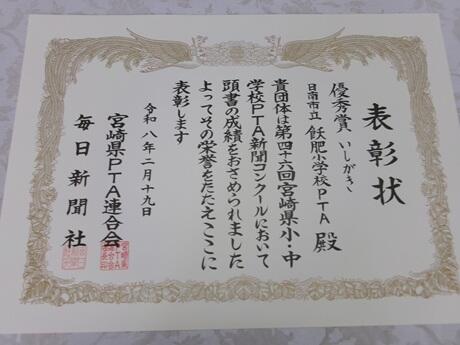 表彰状
優秀賞 いしがき
日南市立 飫肥小学校PTA 殿
貴団体は第四十六回宮崎県小・中
学校PTA新聞コンクールにおいて
頭書の成績をおさめられました
よってその栄誉をたたえここに
表彰します
令和八年二月十九日
宮崎県PTA連合会
毎日新聞社